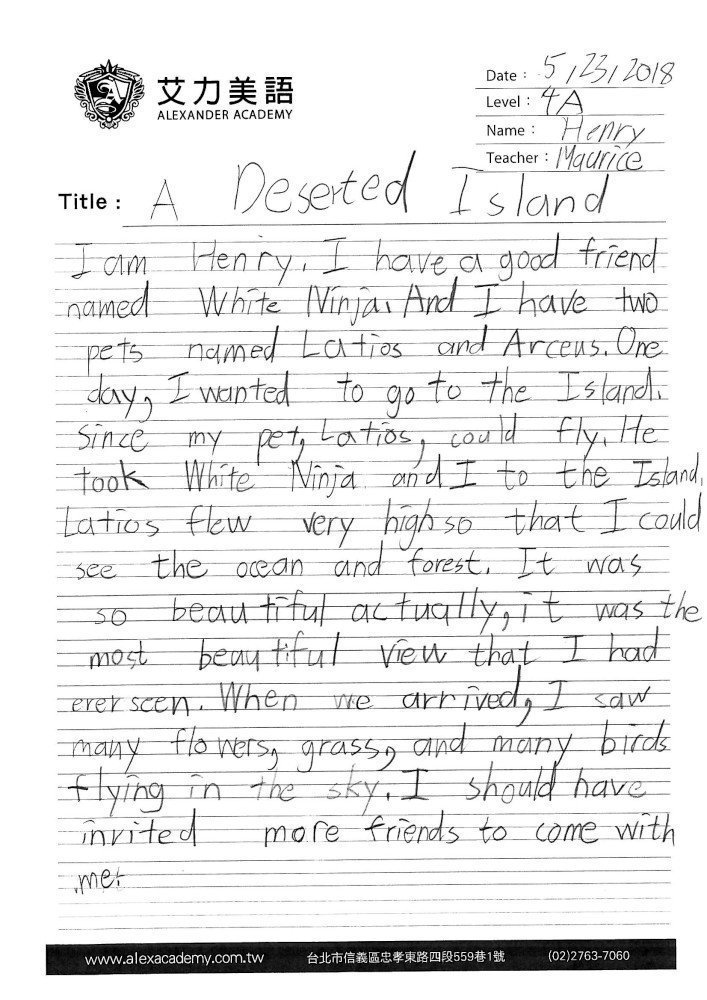 艾力美語
ALEXANDER ACADEMY
Date : 5/23/2018
Level : 4A
Name : Henry
Teacher : Maurice
Title : A Deserted Island
I am Henry. I have a good friend
named White Ninja. And I have two
pets named Latios and Arceus. One
day, I wanted to go to the Island.
Since my pet, Latios, could fly. He
took White Ninja and I to the Island.
Latios flew very high so that I could
see the ocean and forest. It was
so beautiful actually, it was the
most beautiful view that I had
ever seen. When we arrived, I saw
many flowers, grass, and many birds
flying in the sky. I should have
invited more friends to come with
me.
www.alexacademy.com.tw 台北市信義區忠孝東路四段559巷1號 (02)2763-7060